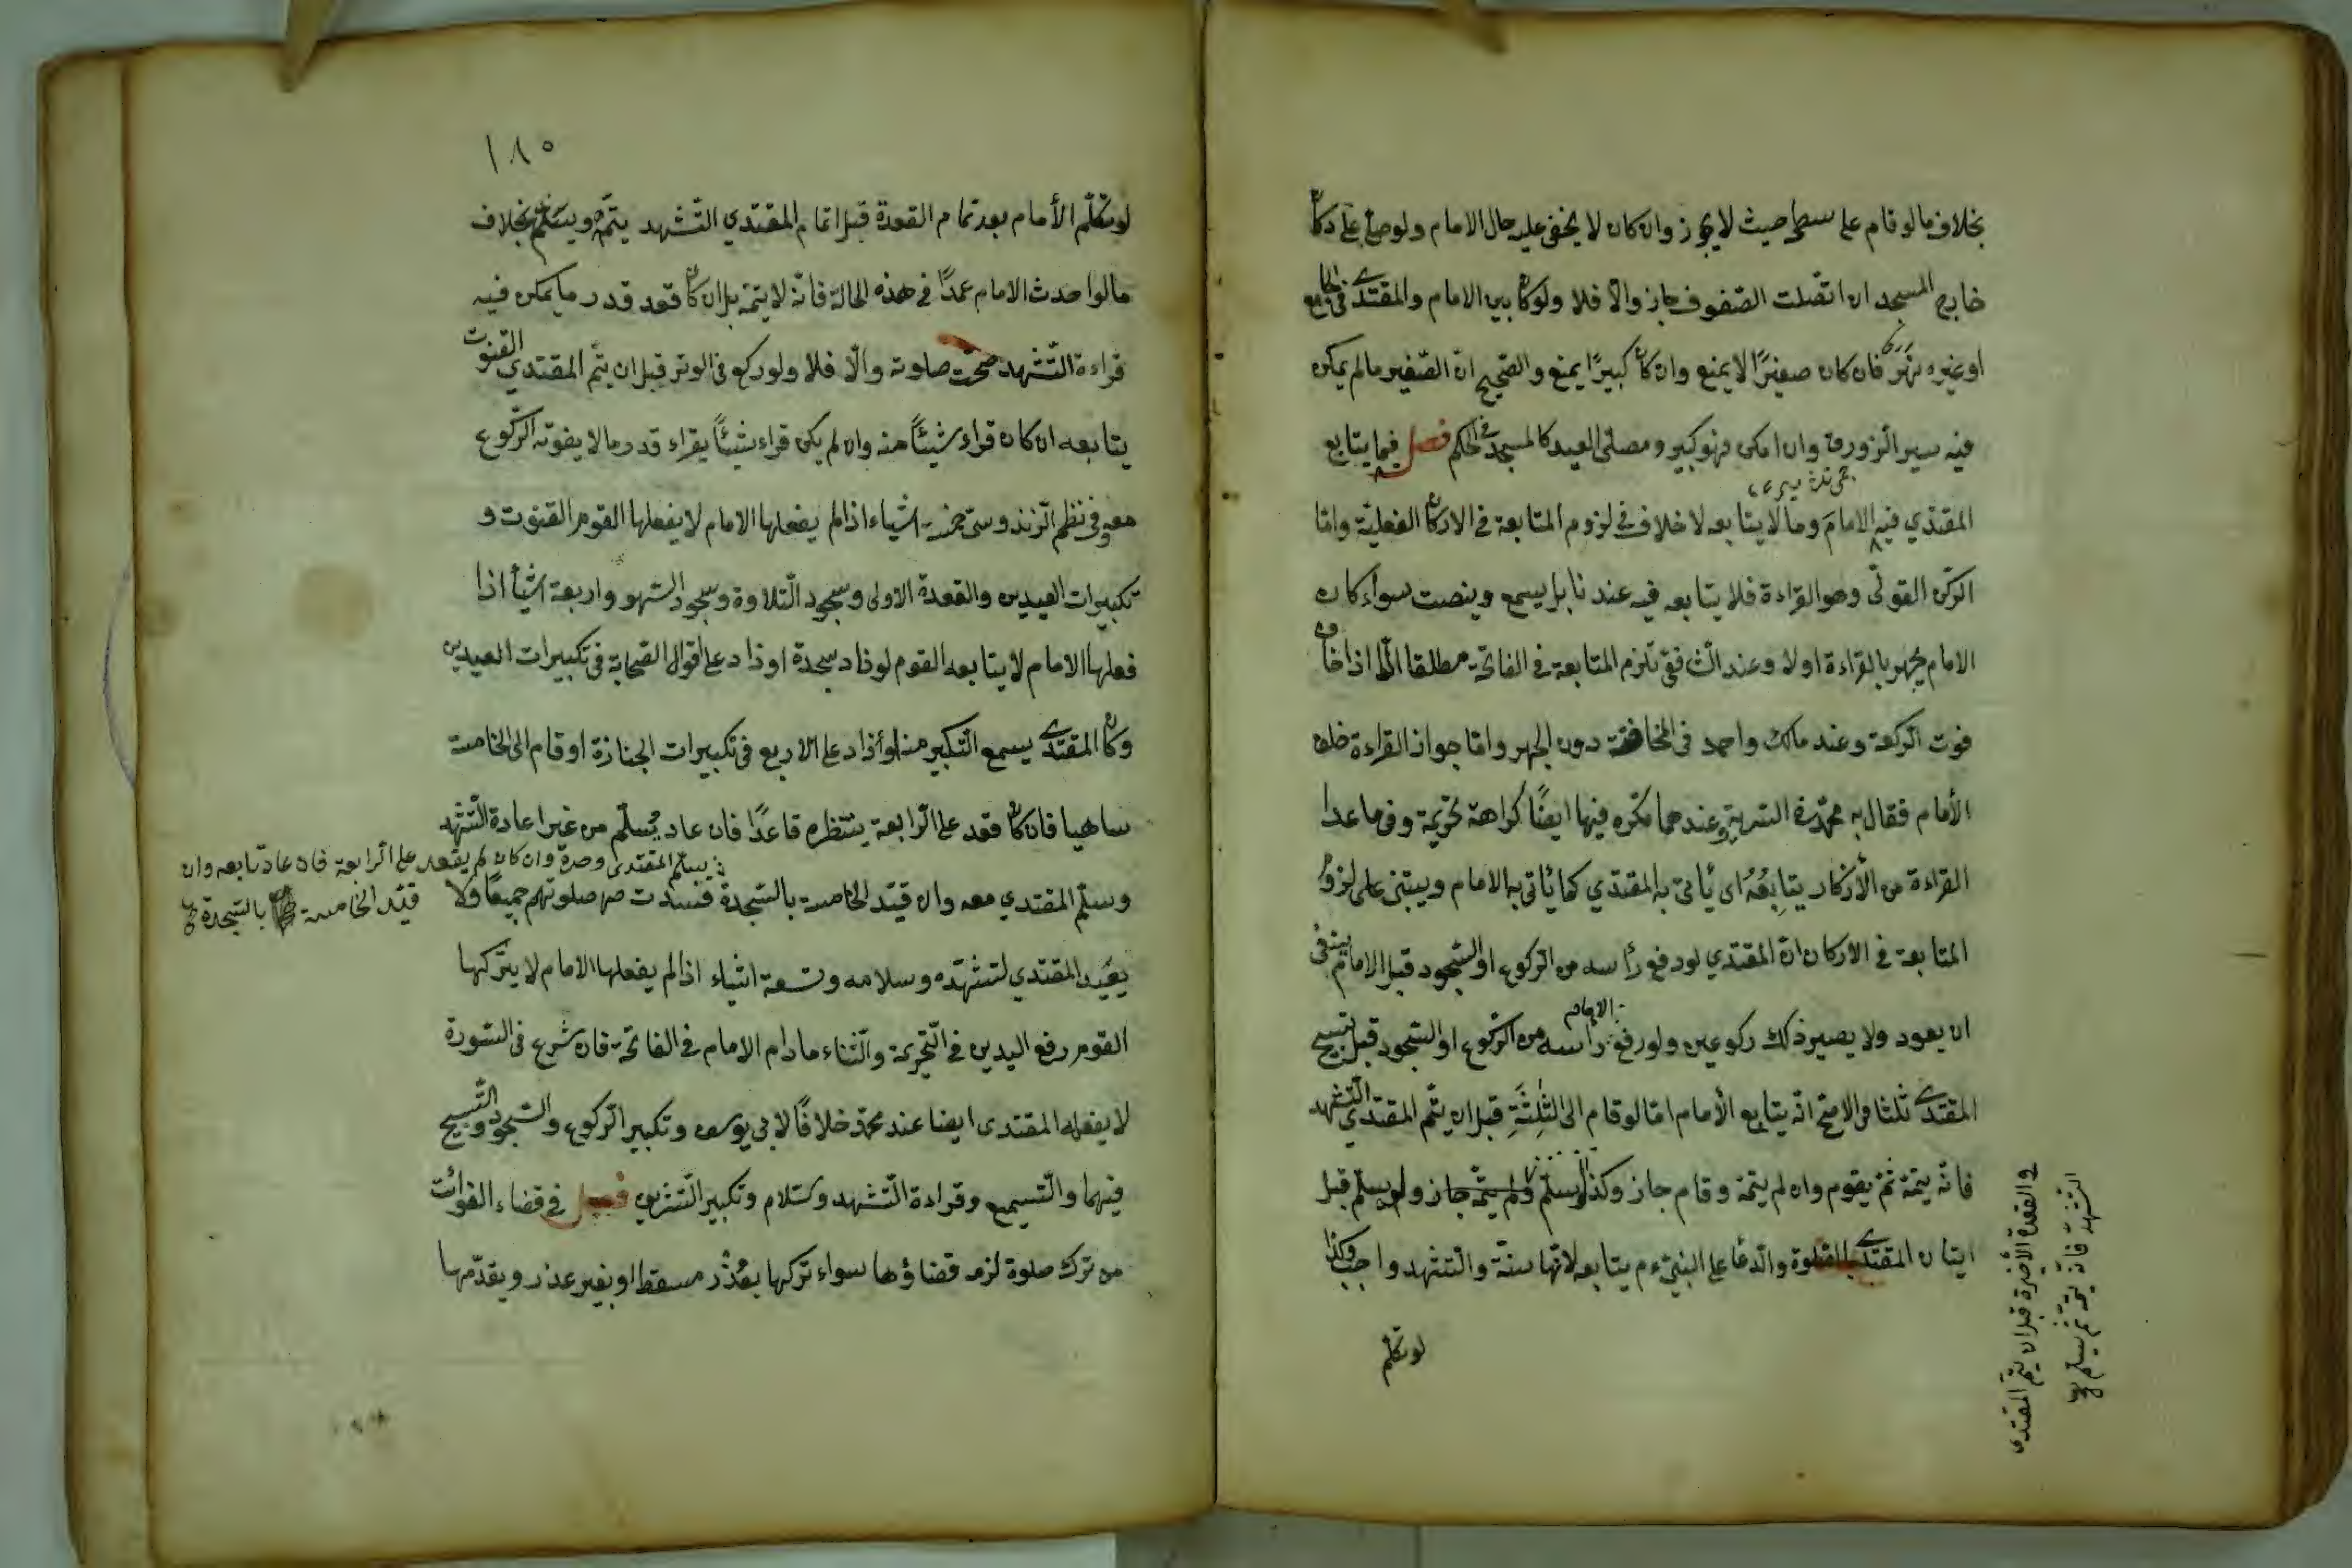 بخلاف ما لو قام على سطحه حيث لا يجوز وان كان لا يخفى عليه حال الامام ولو صلى على دكان
خارج المسجد ان اتصلت الصفوف جاز والا فلا ولو كان بين الامام والمقتدى فى الجامع
او غيره نهر فان كان صغيرًا لا يمنع وان كان كبيرًا يمنع والصحيح ان الصغير ما لم يمكن
فيه سير الزورق وان امكن فهو كبير ومصلى العيد كالمسجد فى الحكم فصل فيما يتابع
المقتدي فيه الامامَ وما لا يتابعه لا خلاف فى لزوم المتابعة فى الاركان الفعلية واما
الركن القولى وهو القراءة فلا يتابعه فيه عندنا بل يسمع وينصت سواء كان
الامام يجهر بالقراءة اولا وعند الشافعى تلزم المتابعة فى الفاتحة مطلقا الا اذا خاف
فوت الركعة وعند مالك واحمد فى المخافتة دون الجهر واما جواز القراءة خلف
الأمام فقال به محمد فى السرية وعندهما تكره فيها ايضًا كراهة تحريمة وفى ما عدا
القراءة من الأذكار يتابِعُهُ اى يأتى به المقتدي كما يأتى به الامام ويبتنى على لزوم
المتابعة فى الاركان ان المقتدي لو رفع رأسه من الركوع او السجود قبل الامام ينبغى
ان يعود ولا يصير ذلك ركوعين ولو رفع الامام رأسه من الركوع او السجود قبل تسبيح
المقتدى ثلثا فالاصح انه يتابع الأمام اما لو قام الى الثلثة قبل ان يتم المقتدي التشهد
فانه يتمه ثم يقوم وان لم يتمه وقام جاز وكذا لو سلم ولم يتمه جاز ولو سلم قبل
ايتان المقتدى بالصلوة والدعا على النبيّ ءم يتابعه لانها سنة والتشهد واجب وكذا
فى القعدة الأخيرة قبل ان يتم المقتدى
التشهد فانه يتمه ثم يسلم صح
لو تكلم
١٨٥
لو تكلم الأمام بعد تمام القعدة قبل اتمام المقتدي التشهد يتمه ويسلم بخلاف
ما لو احدث الامام عمدًا فى هذه الحالة فانه لا يتمه بل ان كان قعد قدر ما يمكن فيه
قراءة التشهد صحت صلوته والا فلا ولو ركع فى الوتر قبل ان يتم المقتدي القنوت
يتابعه ان كان قراء شيئًا منه وان لم يكن قراء شيئًا يقراء قدر ما لا يفوته الركوع
معه وفى نظم الزندوستى خمسة اشياء اذا لم يفعلها الامام لا يفعلها القوم القنوت و
تكبيرات العيدين والقعدة الاولى وسجود التلاوة وسجود السهو واربعة اشيأ اذا
فعلها الامام لا يتابعه القوم لو زاد سجدة او زاد على اقوال الصحابة فى تكبيرات العيدين
وكان المقتدى يسمع التكبير منه او زاد على الاربع فى تكبيرات الجنازة او قام الى الخامسة
ساهيا فان كان قعد على الرابعة ينتظره قاعدًا فان عاد يُسلّم من غير اعادة التشهد
وسلم المقتدي معه وان قيّد الخامسة بالسجدة فسدت صلوتهم جميعًا ولا
يسلم المقتدى وحده وان كان لم يقعد على الرابعة فان عاد تابعه وان
قيّد الخامسة بالسجدة صح
يعيد المقتدي لتشهّده وسلامه وتسعة اشياء اذا لم يفعلها الامام لا يتركها
القوم رفع اليدين فى التحريمة والثناء ما دام الامام فى الفاتحة فان شرع فى السورة
لا يفعله المقتدى ايضا عند محمد خلافًا لابى يوسف وتكبير الركوع والسجود والتسبيح
فيهما والتسميع وقراءة التشهد وسلام وتكبير التشريق فصل فى قضاء الفوائت
من ترك صلوة لزمه قضاؤها سواء تركها بعُذر مسقط او بغير عذر ويقدّمها